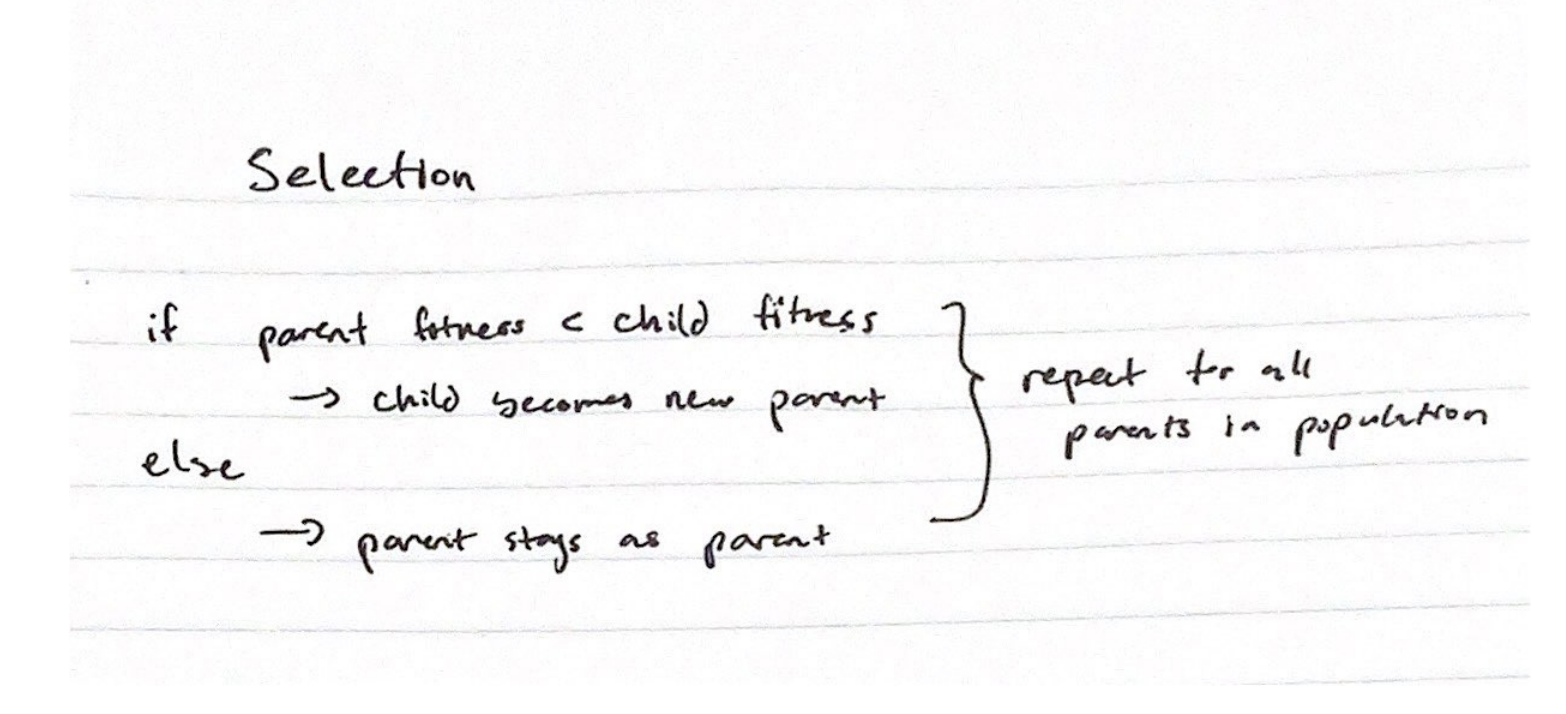 Selection
if parent fitness < child fitness
→ child becomes new parent
else
→ parent stays as parent
repeat for all
parents in population